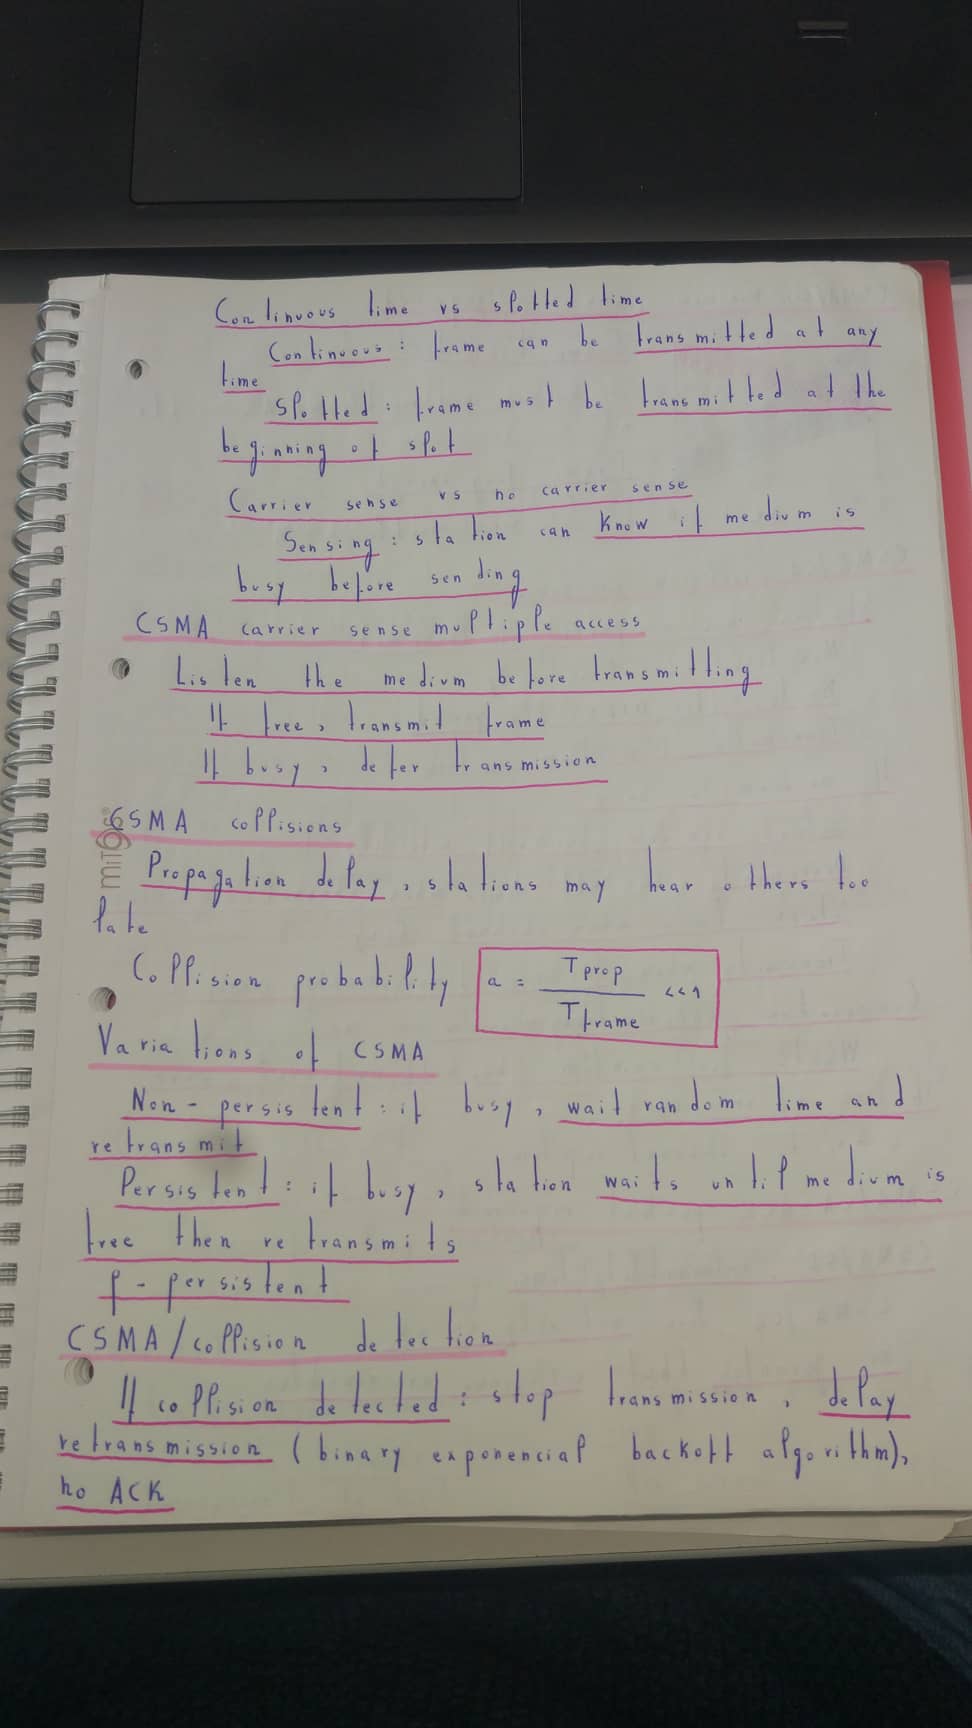 Continuous time vs splotted time
Continuous: frame can be transmitted at any
time
Splotted: frame must be transmitted at the
beginning of splot
Carrier sense vs no carrier sense
Sensing: station can know if medium is
busy before sending
CSMA carrier sense multiple access
Listen the medium before transmitting
If free, transmit frame
If busy, defer transmission
CSMA collisions
Propagation delay, stations may hear others too
late
Collision probability a = Tprop / Tframe <<1
Variations of CSMA
Non-persistent: if busy, wait random time and
retransmit
Persistent: if busy, station waits until medium is
free then retransmits
p-persistent
CSMA/collision detection
If collision detected: stop transmission, delay
retransmission (binary exponencial backoff algorithm),
no ACK